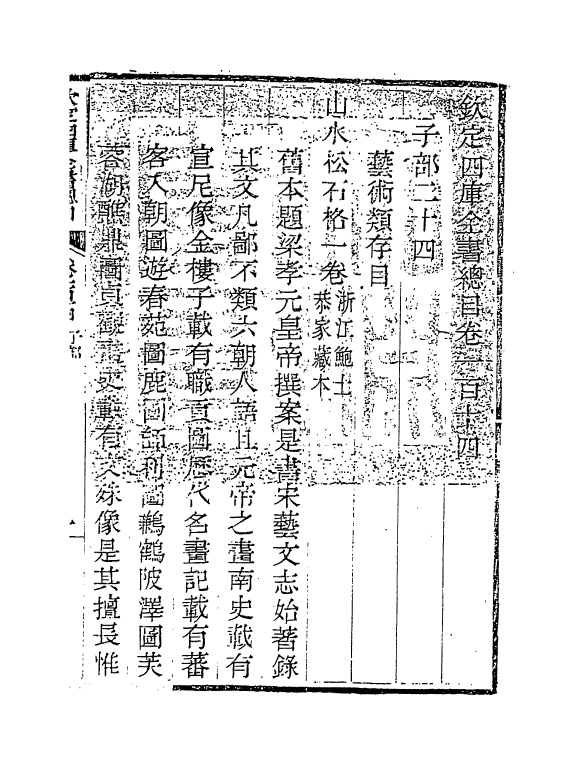 欽定四庫全書總目卷一百十四
子部二十四
藝術類存目
山水松石格一卷浙江鮑士恭家藏本
舊本題梁孝元皇帝撰案是書宋藝文志始著錄
其文凡鄙不類六朝人語且元帝之畫南史載有
宣尼像金樓子載有職貢圖歷代名畫記載有蕃
客入朝圖遊春苑圖鹿圖師利圖鶼鶴陂澤圖芙
蓉湖醮鼎圖貞觀畫史載有文殊像是其擅長惟